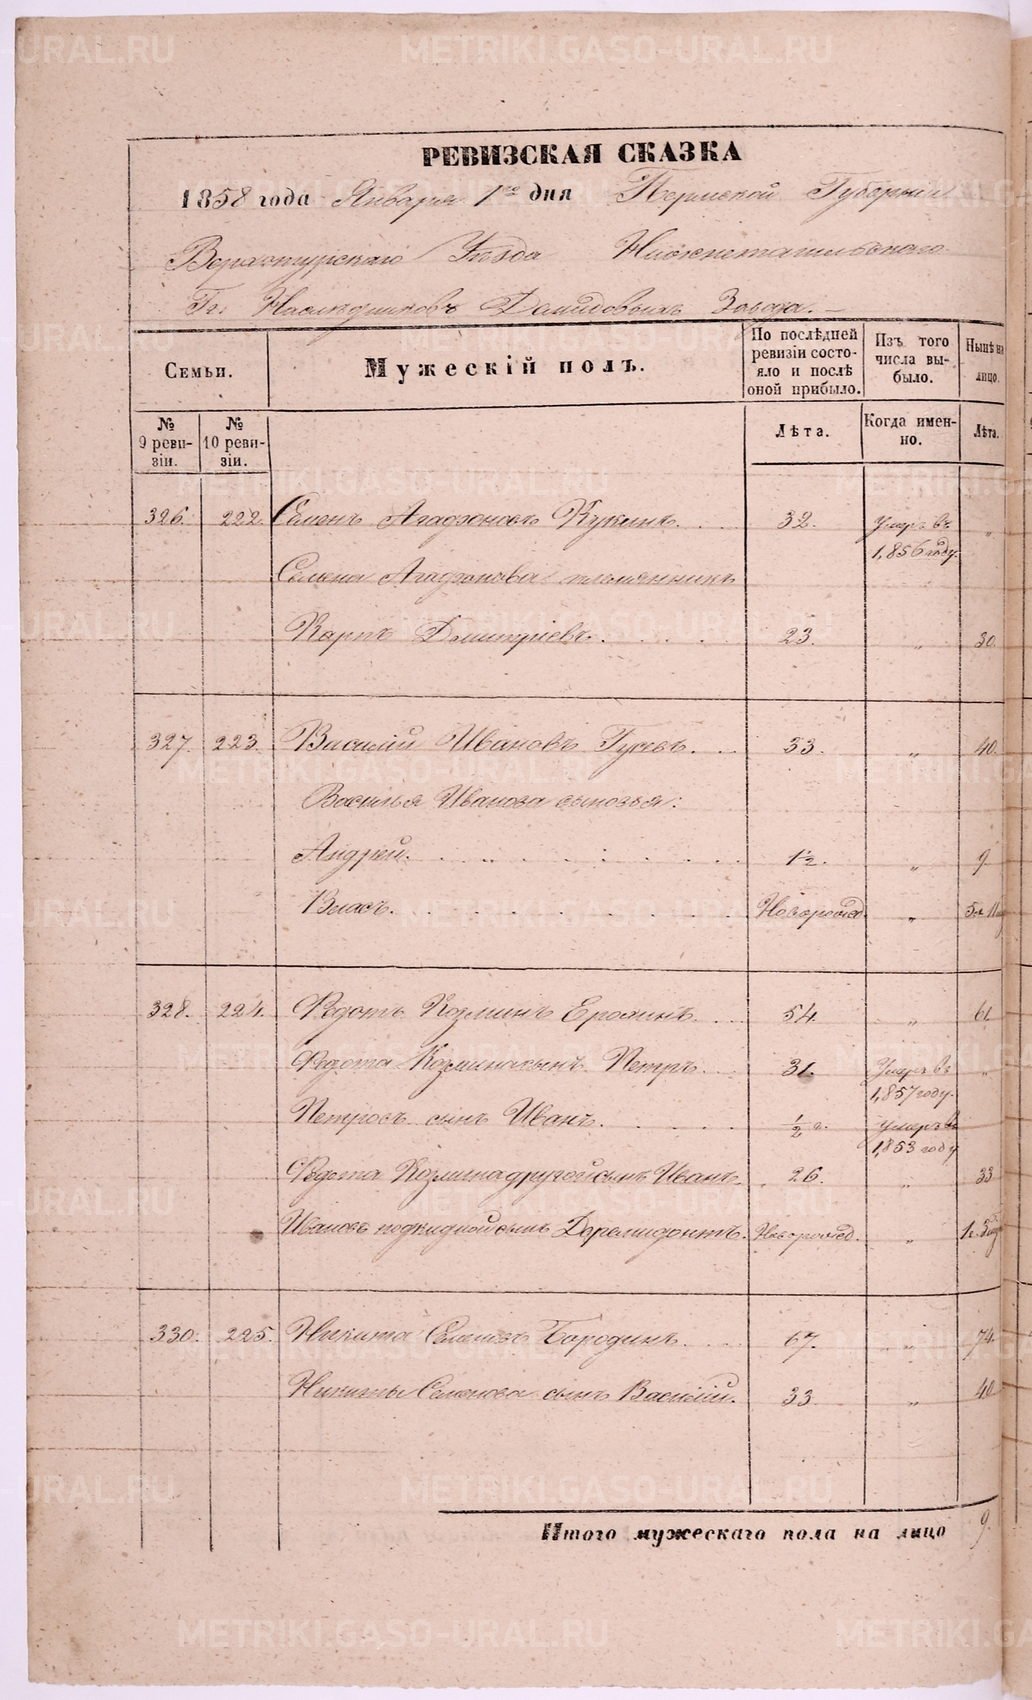 РЕВИЗСКАЯ СКАЗКА
1858 года Января 1го дня Пермской Губерніи
Верхотурскаго Уѣзда Нижнетагильскаго
Гг. Наслѣдниковъ Демидовыхъ Завода.
Семьи.
Мужескій полъ.
По послѣдней ревизіи состояло и послѣ оной прибыло.
Изъ того числа выбыло.
Нынѣ на лицо.
№ 9 ревизіи.
№ 10 ревизіи.
Лѣта.
Когда именно.
Лѣта.
326. 222. Семенъ Агафоновъ Кукинъ 32. Умеръ въ 1,856 году. „
Семена Агафонова племянникъ
Карпъ Дмитріевъ. 23. „ 30.
327. 223. Василій Ивановъ Гусевъ. 33. „ 40.
Василья Иванова сыновья:
Андрей. 1½. „ 9.
Власъ. Новорожд. „
328. 224. Федотъ Козминъ Ероминъ. 54. „ 61
Федота Козмина сынъ Петръ. 31. Умеръ въ 1,857 году. „
Петровъ сынъ Иванъ. ½ г. Умеръ въ 1,853 году
Федота Козмина другой сынъ Иванъ. 26. „ 33
Ивановъ подкидной сынъ Доремидонтъ. Новорожд. „
330. 225. Никита Семеновъ Бородинъ. 67. „ 74.
Никиты Семенова сынъ Василій. 33 „ 40
Итого мужескаго пола на лицо 9.
METRIKI.GASO-URAL.RU